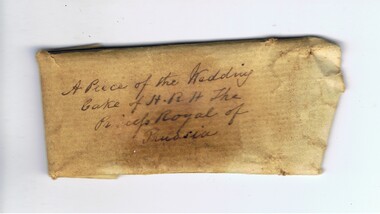 A Piece of the Wedding
Cake of H.R.H The
Royal of
Prussia